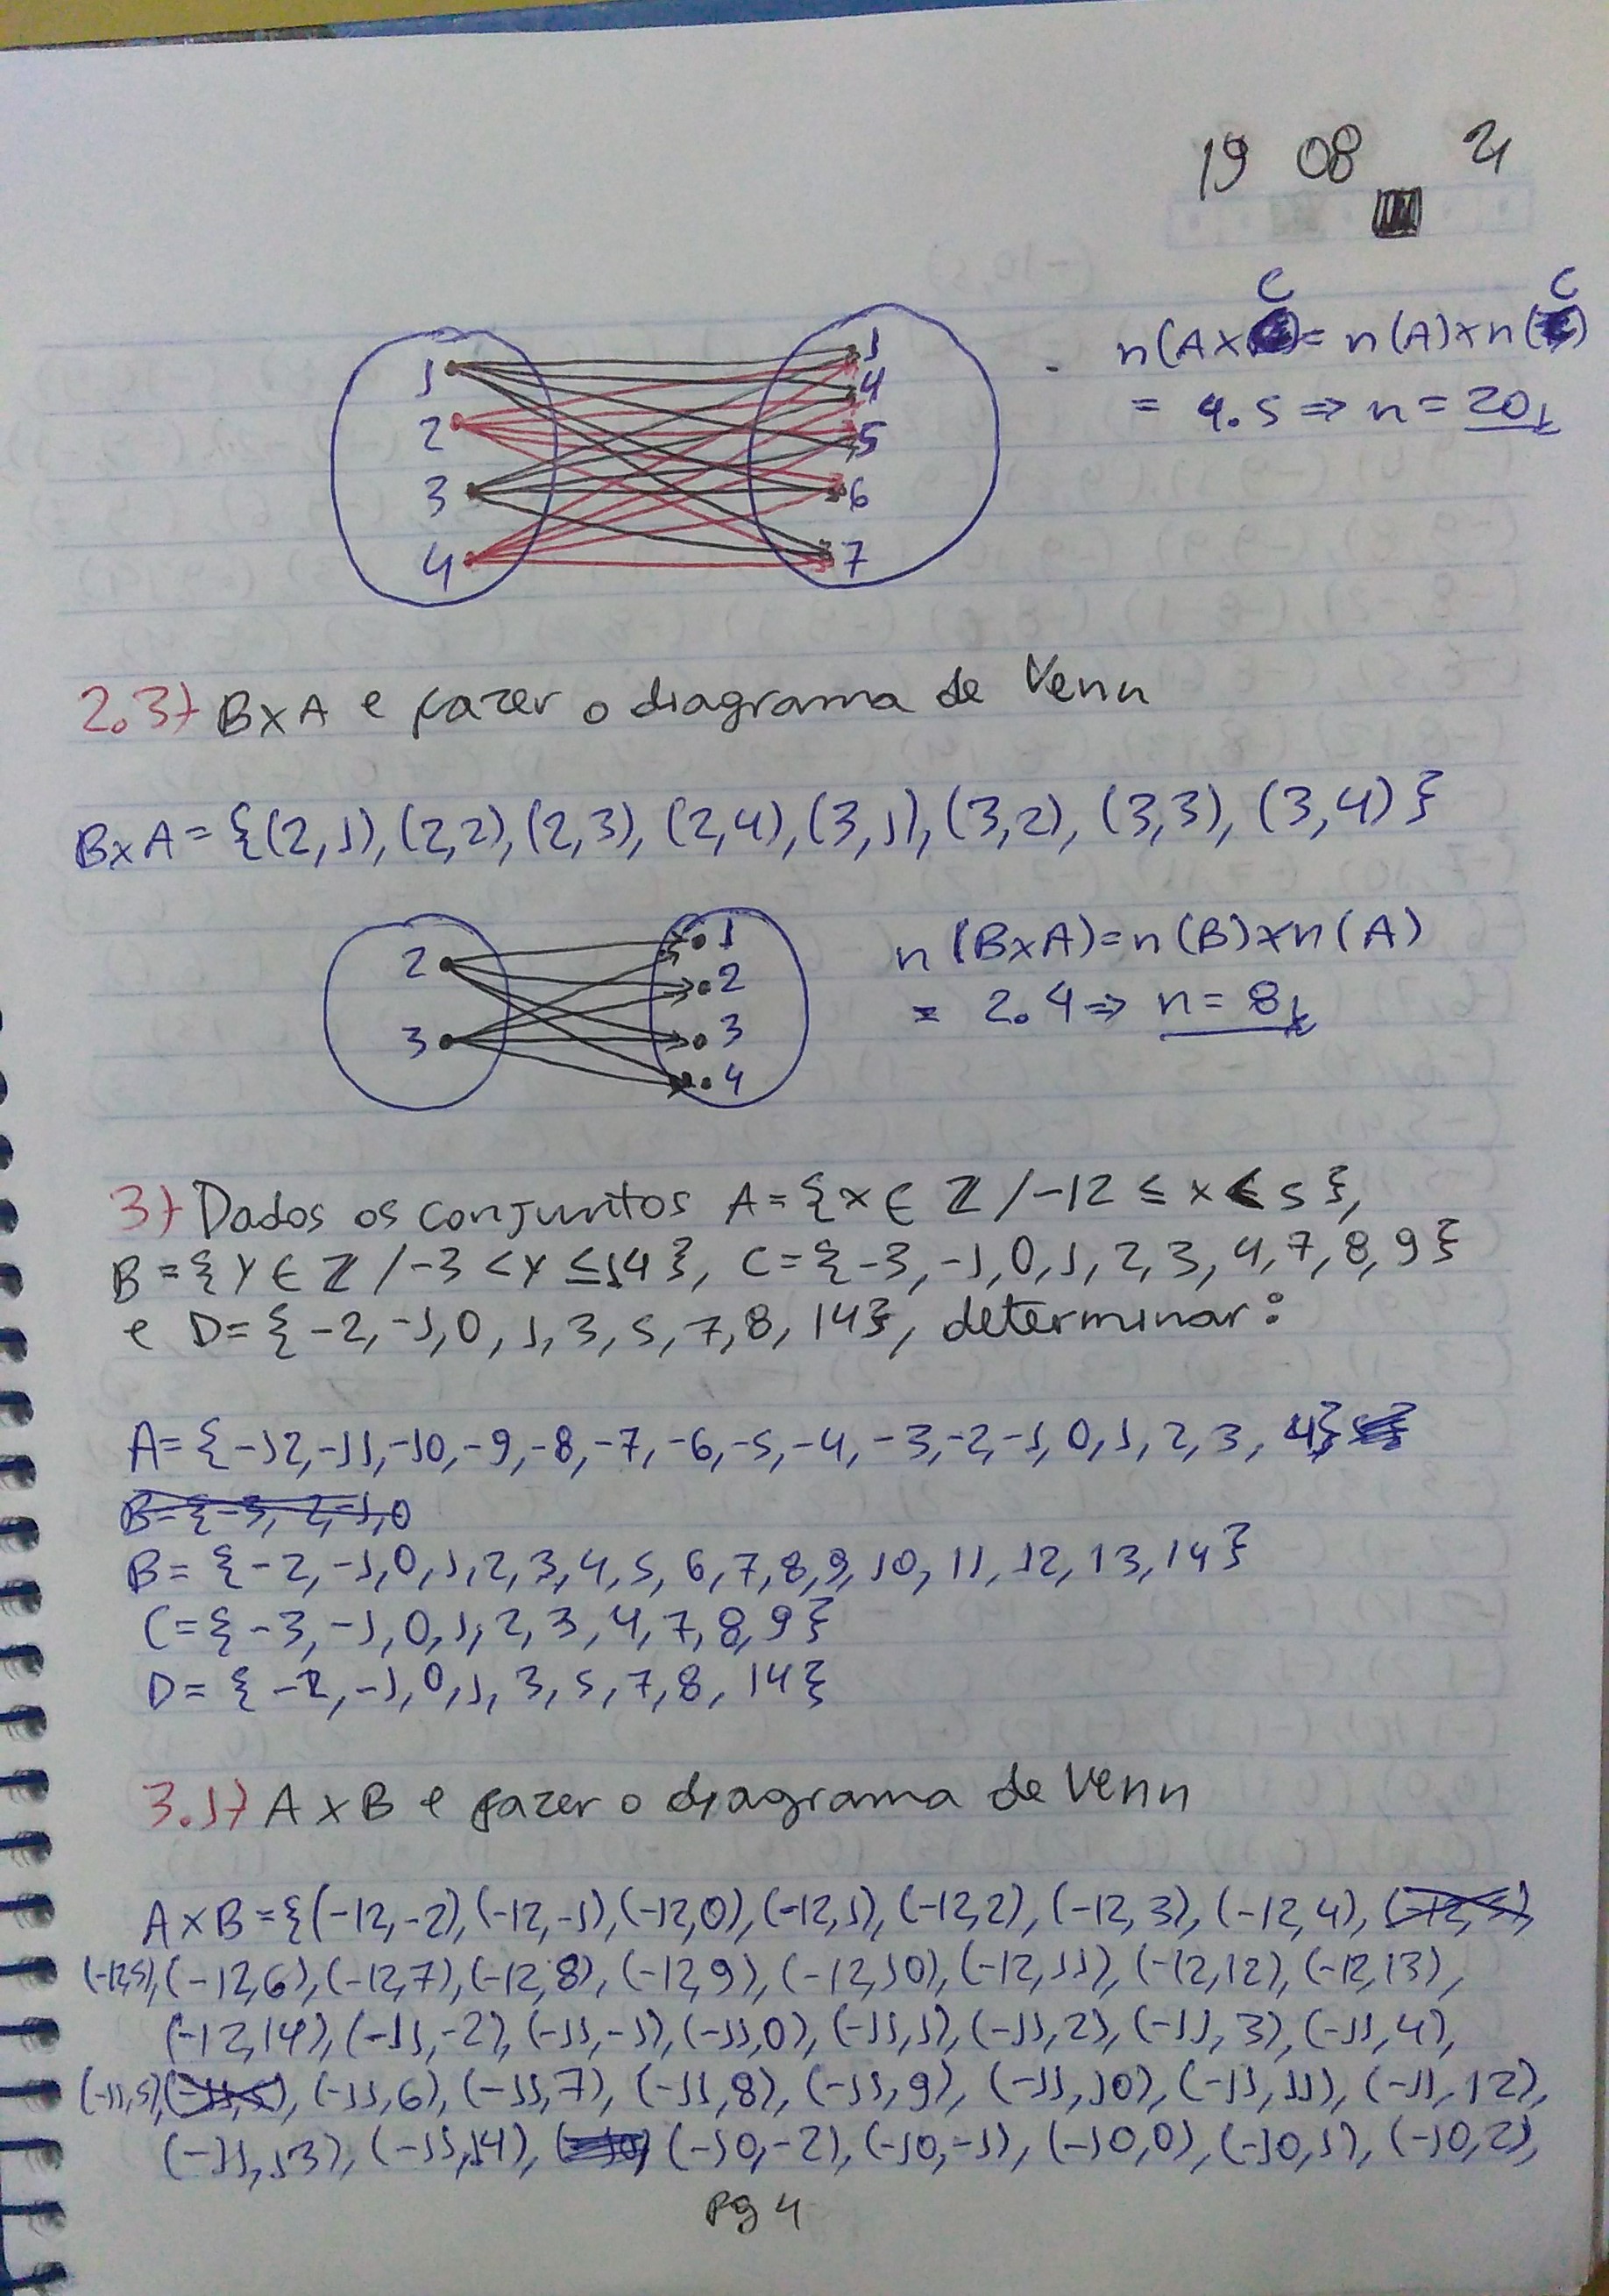 19 08 21
n(A×C)= n(A)×n(C)
= 4.5 ⇒ n = 20
1
2
3
4
1
4
5
6
7
2.3) B×A e fazer o diagrama de Venn
B×A = {(2,1), (2,2), (2,3), (2,4), (3,1), (3,2), (3,3), (3,4)}
2
3
1
2
3
4
n (B×A)=n(B)×n(A)
= 2.4 ⇒ n = 8
3) Dados os conjuntos A={x ∈ ℤ /-12 ≤ x < 5},
B = {y ∈ ℤ /-3 < y ≤ 14}, C={-3,-1,0,1,2,3,4,7,8,9}
e D={-2,-1,0,1,3,5,7,8,14}, determinar:
A={-12,-11,-10,-9,-8,-7,-6,-5,-4,-3,-2,-1,0,1,2,3,4}
B={-3,-2,-1,0
B= {-2,-1,0,1,2,3,4,5,6,7,8,9,10,11,12,13,14}
C={-3,-1,0,1,2,3,4,7,8,9}
D= {-2,-1,0,1,3,5,7,8,14}
3.1) A×B e fazer o diagrama de Venn
A×B={(-12,-2),(-12,-1),(-12,0),(-12,1),(-12,2),(-12,3),(-12,4),
(-12,5),(-12,6),(-12,7),(-12,8),(-12,9),(-12,10),(-12,11),(-12,12),(-12,13),
(-12,14),(-11,-2),(-11,-1),(-11,0),(-11,1),(-11,2),(-11,3),(-11,4),
(-11,5),(-11,5),(-11,6),(-11,7),(-11,8),(-11,9),(-11,10),(-11,11),(-11,12),
(-11,13),(-11,14),(-10,-2),(-10,-1),(-10,0),(-10,1),(-10,2),
Pg 4